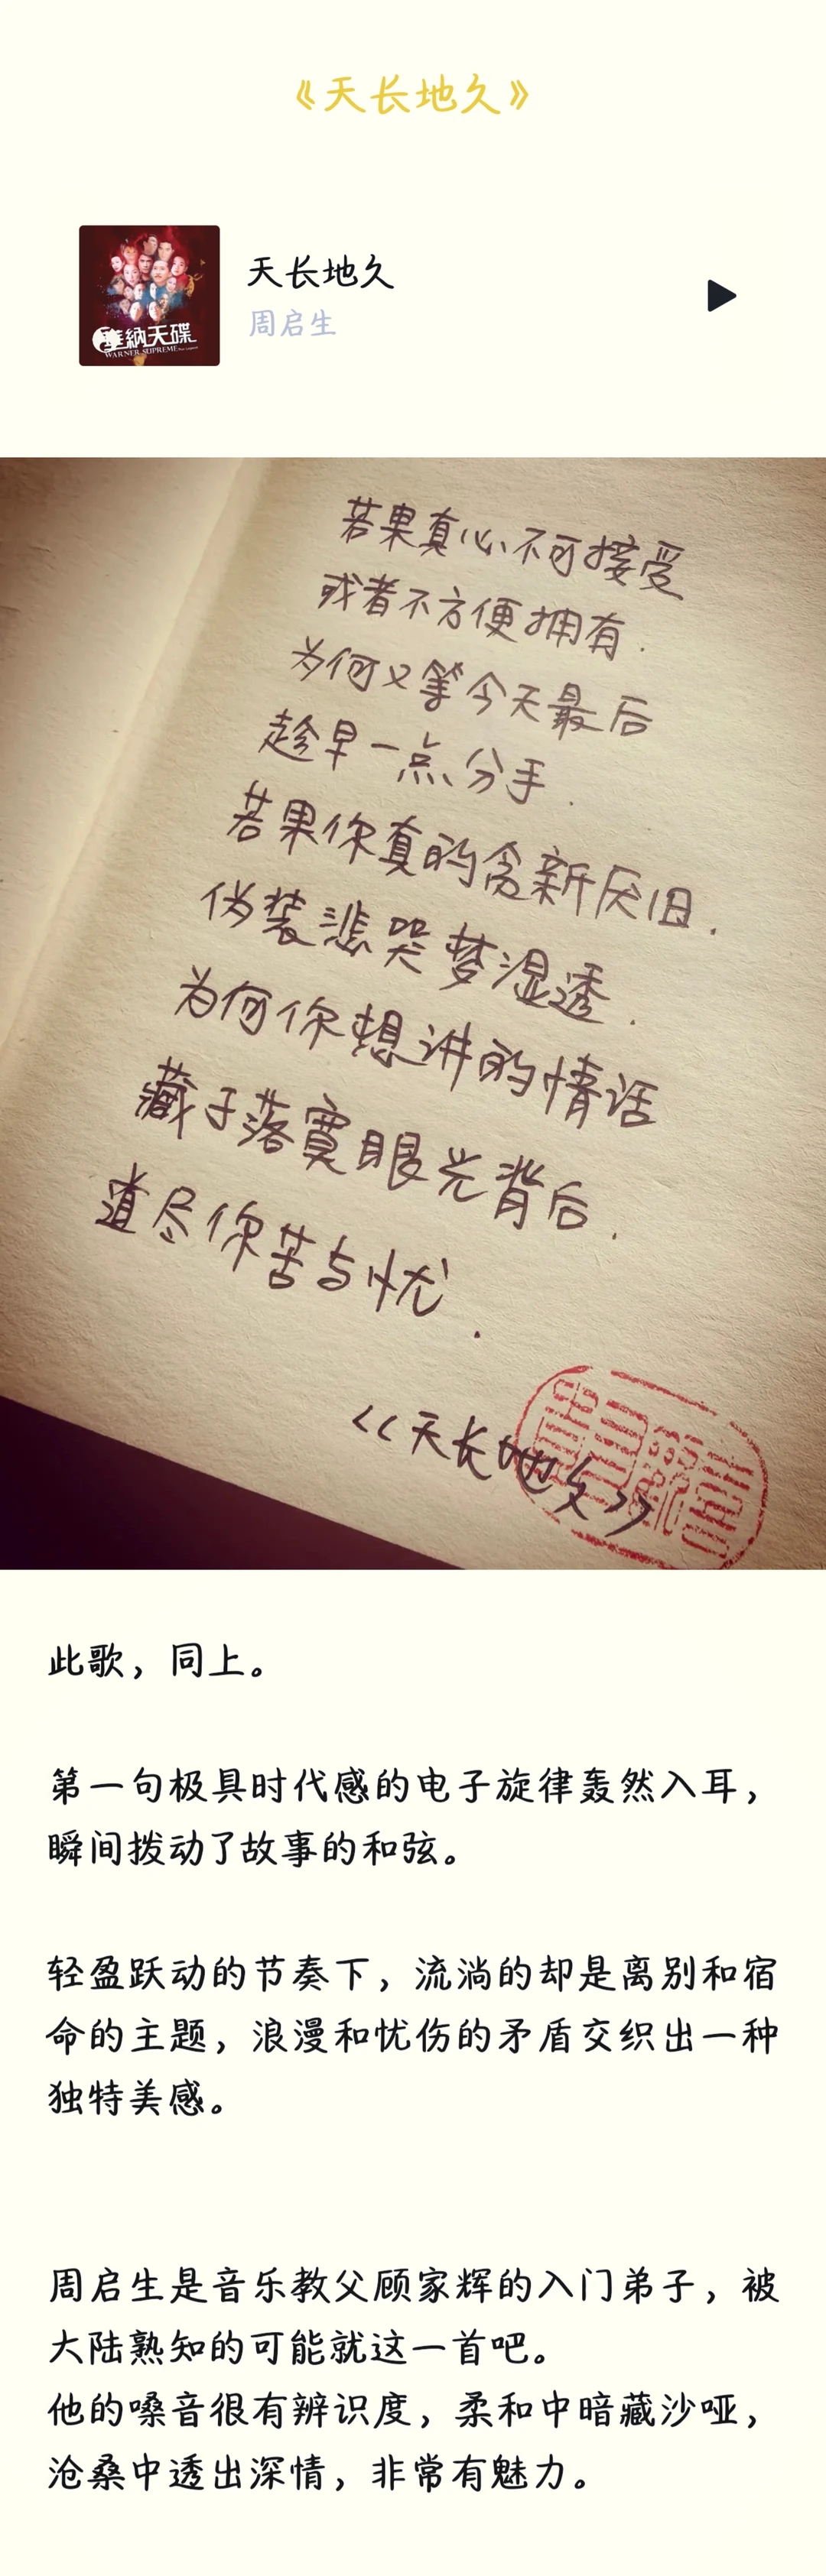 《天长地久》
天长地久
周启生
華納天碟
WARNER SUPREME
若果真心不可接受
或者不方便拥有.
为何又等今天最后
趁早一点分手.
若果你真的贪新厌旧.
伪装悲哭梦湿透.
为何你想讲的情话
藏于落寞眼光背后.
道尽你苦与忧.
<<天长地久>>
此歌，同上。
第一句极具时代感的电子旋律轰然入耳，
瞬间拨动了故事的和弦。
轻盈跃动的节奏下，流淌的却是离别和宿
命的主题，浪漫和忧伤的矛盾交织出一种
独特美感。
周启生是音乐教父顾家辉的入门弟子，被
大陆熟知的可能就这一首吧。
他的嗓音很有辨识度，柔和中暗藏沙哑，
沧桑中透出深情，非常有魅力。